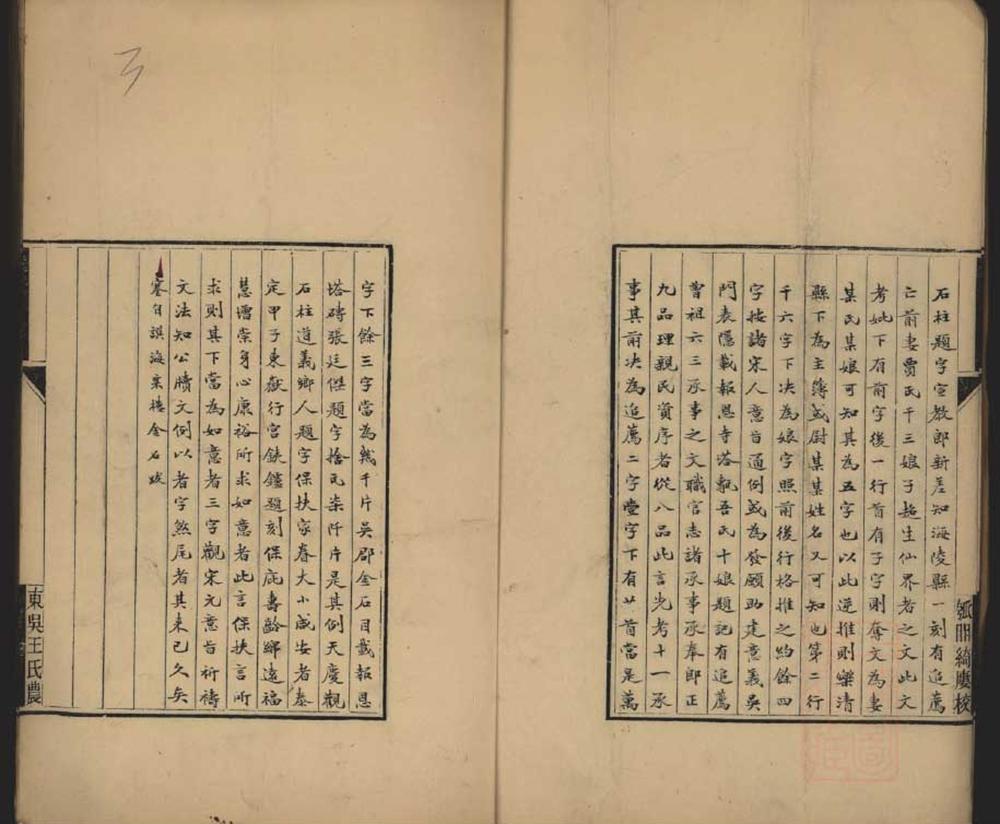 石柱題字宣教郎新差知海陵縣一刻有追薦
亡前妻賈氏千三娘子超生仙界者之文此文
考妣下有前字後一行首有子字則奪文為妻
某氏某娘可知其為五字也以此逆推則樂清
縣下為主簿或尉某某姓名又可知也第二行
千六字下決為娘字照前後行格推之約餘四
字按諸宋人意旨通例或為發願助建意義吳
門表隱載報恩寺塔甎吾氏十娘題記有追薦
曾祖六三承事之文職官志諸承事承奉郎正
九品理親民資序者從八品此言先考十一承
事其前決為追薦二字壹字下有艹首當是萬
瓠開綺廔校
字下餘三字當為幾千片吳郡金石目載報恩
塔磚張廷傑題字捨瓦柒阡片是其例天慶觀
石柱道義鄉人題字保扶家眷大小咸安者泰
定甲子東嶽行宮鐵鑪題刻保庇壽齡綿遠福
慧增崇身心康裕所求如意者此言保扶言所
求則其下當為如意者三字觀宋元意旨祈禱
文法知公牘文例以者字煞尾者其來已久矣
蹇自誤海棠樓金石跋
東吳王氏農